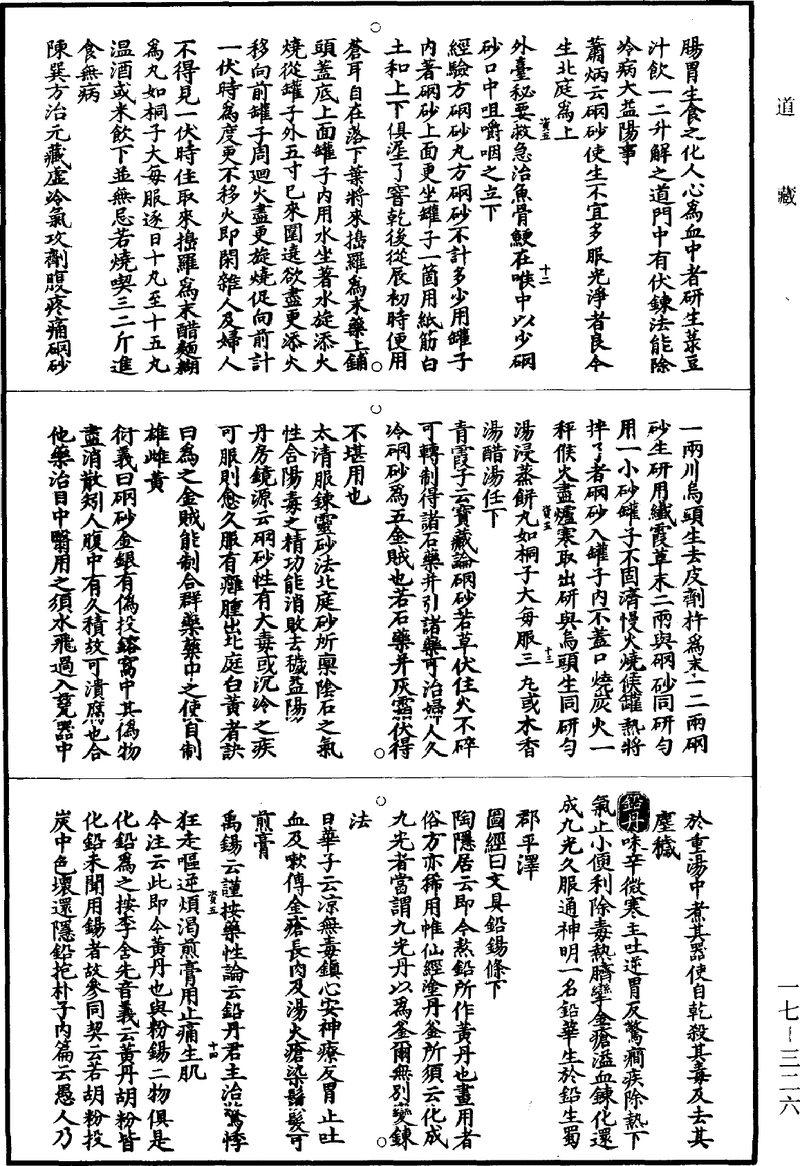 道藏
腸胃生食之化人心為血中者研生菉豆
汁飲一二升解之道門中有伏鍊法能除
冷病大益陽事
蕭炳云硇砂使生不宜多服光淨者良今
生北庭為上
資五
外臺秘要救急治魚骨鯁在喉中以少硇
十二
砂口中咀嚼咽之立下
經驗方硇砂丸方硇砂不計多少用罐子
內著硇砂上面更坐罐子一箇用紙筋白
土和上下俱泥了窨乾後從辰初時便用
蒼耳自在落下葉將來搗羅為末藥上鋪
頭蓋底上面罐子內用水坐著水旋添火
燒從罐子外五寸已來圍遶欲盡更添火
移向前罐子周迴火盡更旋燒促向前計
一伏時為度更不移火即閑雜人及婦人
不得見一伏時住取來搗羅為末醋麵糊
為丸如桐子大每服逐日十丸至十五丸
温酒或米飲下並無忌若燒喫三二斤進
食無病
陳巽方治元藏虛冷氣攻劑腹疼痛硇砂
一兩川烏頭生去皮劑杵為末一二兩硇
砂生研用纖霞草末二兩與硇砂同研勻
用一小砂罐子不固濟慢火燒候罐熱將
拌了者硇砂入罐子內不蓋口燒炭火一
秤候火盡爐寒取出研與烏頭生同研勻
資五
湯浸蒸餅丸如桐子大每服三丸或木香
十三
湯醋湯任下
青霞子云寶藏論硇砂若草伏住火不碎
可轉制得諸石藥并引諸藥可治婦人久
冷硇砂為五金賊也若石藥并灰霜伏得
不堪用也
太清服鍊靈砂法北庭砂所稟陰石之氣
性合陽毒之精功能消敗去穢益陽
丹房鏡源云硇砂性有大毒或沉冷之疾
可服則愈久服有癰腫出北庭白黃者訣
曰為之金賊能制合群藥藥中之使自制
雄雌黃
衍義曰硇砂金銀有偽投鎔窩中其偽物
盡消散矧人腹中有久積故可潰腐也合
他藥治目中翳用之須水飛過入瓷器中
於重湯中煮其器使自乾殺其毒及去其
塵穢
鉛丹味辛微寒主吐逆胃反驚癇疾除熱下
氣止小便利除毒熱臍攣金瘡溢血鍊化還
成九光久服通神明一名鉛華生於鉛生蜀
郡平澤
圖經曰文具鉛錫條下
陶隱居云即今熬鉛所作黃丹也畫用者
俗方亦稀用惟仙經塗丹釜所須云化成
九光者當謂九光丹以為釜爾無別變鍊
法
日華子云涼無毒鎮心安神療反胃止吐
血及嗽傅金瘡長肉及湯火瘡染鬚髮可
煎膏
禹錫云謹按藥性論云鉛丹君主治驚悸
資五
狂走嘔逆煩渴煎膏用止痛生肌
十四
今注云此即今黃丹也與粉錫二物俱是
化鉛為之按李含光音義云黃丹胡粉皆
化鉛未聞用錫者故參同契云若胡粉投
炭中色壞還隱鉛抱朴子內篇云愚人乃
一七-三二六